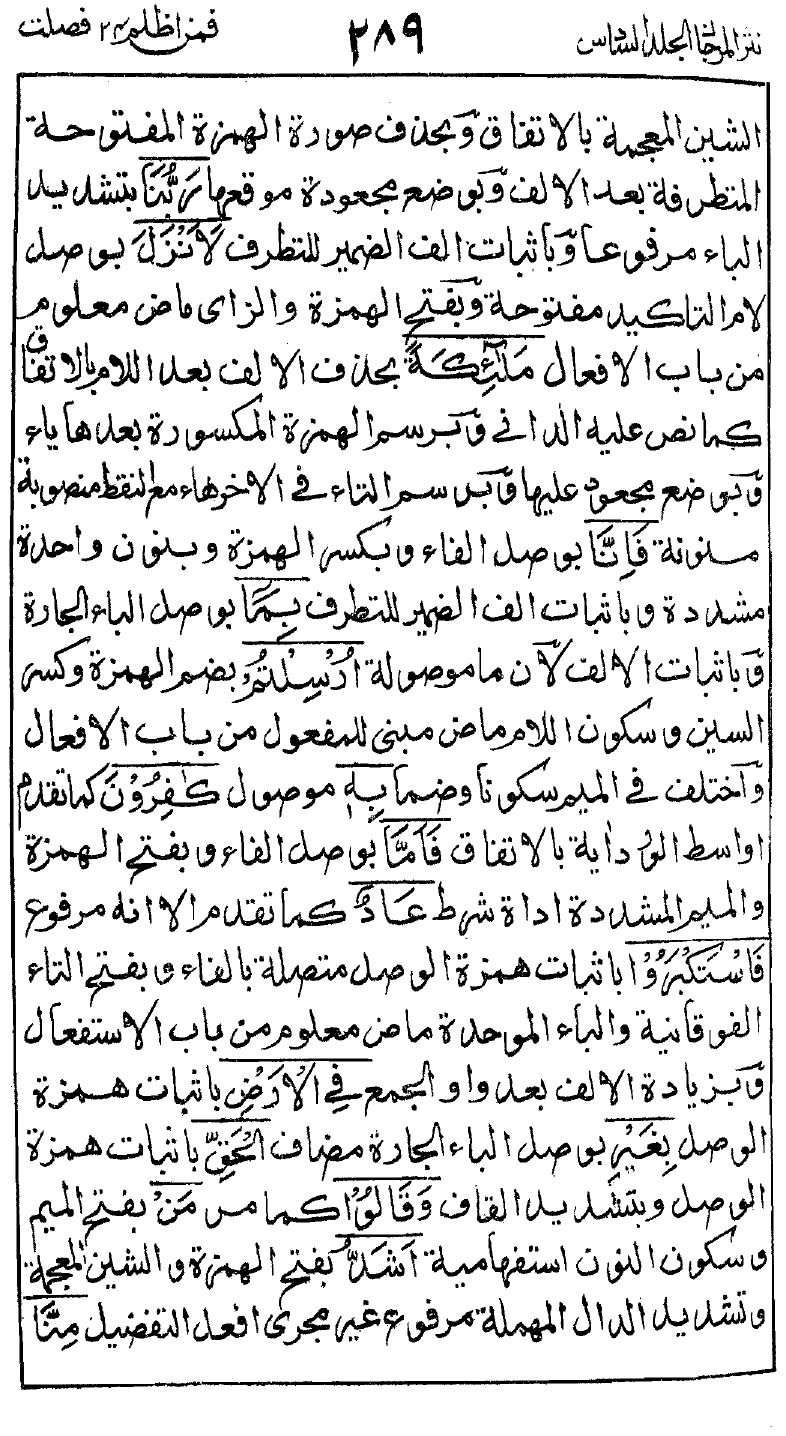 نثر المرجان الجلد السادس ٢٨٩ فمن اظلم ٢٤ فصلت
الشين المعجمة بالاتفاق وبحذف صورة الهمزة المفتوحة
المتطرفة بعد الالف وبوضع مجعودة موقعها رَبُّنَا بتشديد
الباء مرفوعا وباثبات الف الضمير للتطرف لَاَنْزَلَ بوصل
لام التاكيد مفتوحة وبفتح الهمزة والزاى ماض معلوم
من باب الافعال مَلٰٓئِكَةً بحذف الالف بعد اللام بالاتفاق
كما نص عليه الدانى وبرسم الهمزة المكسورة بعدها ياء
وبوضع مجعود عليها وبرسم التاء فى الاخر هاء مع النقط منصوبة
منونة فَاِنَّا بوصل الفاء وبكسر الهمزة وبنون واحدة
مشددة وباثبات الف الضمير للتطرف بِمَا بوصل الباء الجارة
وباثبات الالف لان ما موصولة اُرْسِلْتُمْ بضم الهمزة وكسر
السين وسكون اللام ماض مبنى للمفعول من باب الافعال
واختلف فى الميم سكونا وضما بِهٖ موصول كٰفِرُوْنَ كما تقدم
اواسط الورداية بالاتفاق فَاَمَّا بوصل الفاء وبفتح الهمزة
والميم المشددة اداة شرط عَادٌ كما تقدم الا انه مرفوع
فَاسْتَكْبَرُوْا باثبات همزة الوصل متصلة بالفاء وبفتح التاء
الفوقانية والباء الموحدة ماض معلوم من باب الاستفعال
وبزيادة الالف بعد واو الجمع فِى الْاَرْضِ باثبات همزة
الوصل بِغَيْرِ بوصل الباء الجارة مضاف الْحَقِّ باثبات همزة
الوصل وبتشديد القاف وَقَالُوْا كما مر مَنْ بفتح الميم
وسكون النون استفهامية اَشَدُّ بفتح الهمزة والشين المعجمة
وتشديد الدال المهملة مرفوع غير مجرى افعل التفضيل مِنَّا